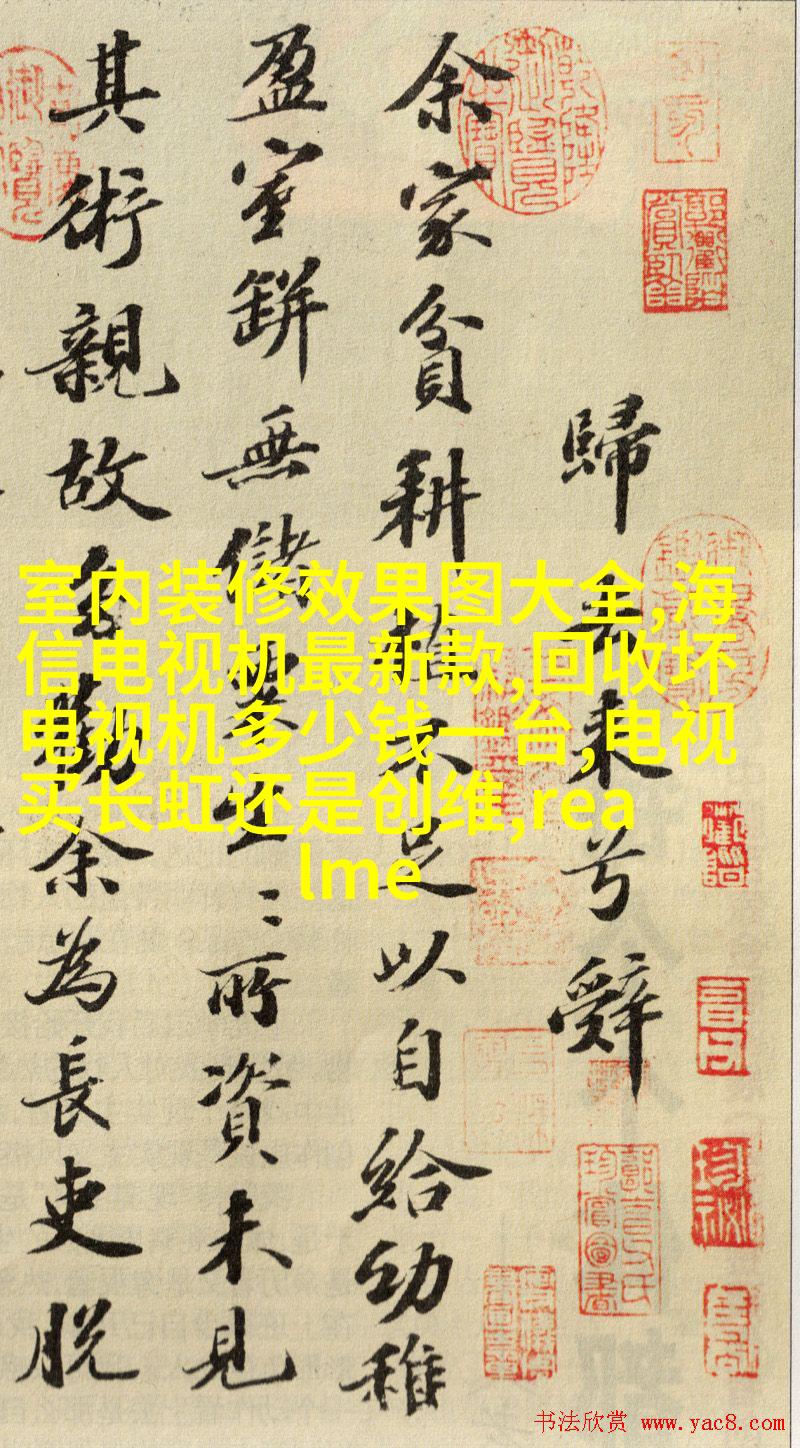 歸去来兮辭
余家貧耕植不足以自給幼稚
盈室缾無儲粟生〻所資未見
其術親故多勸余為長吏脱
室内装修效果图大全,海
信电视机最新款,回收坏
电视机多少钱一台,电视
买长虹还是创维,rea
lme
书法欣赏 www.yac8.com